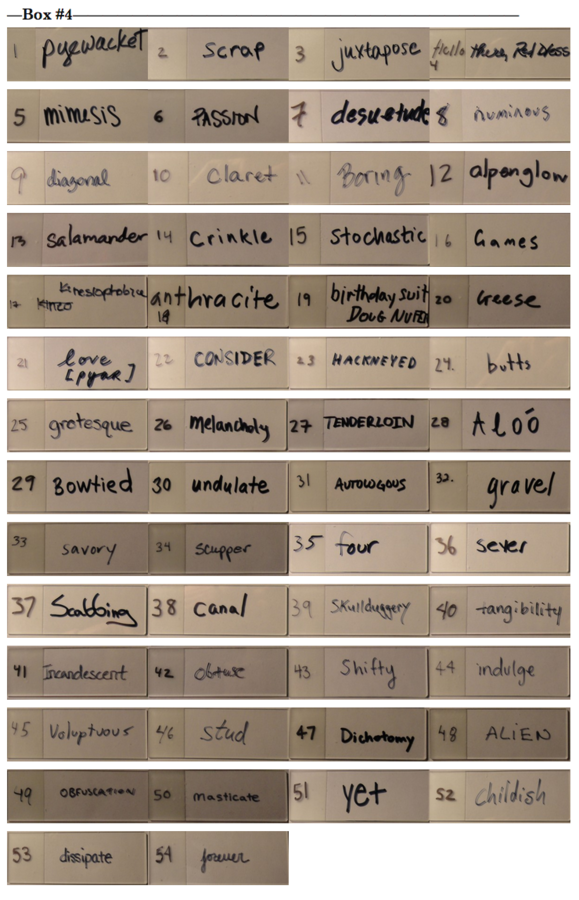 Box #4
1 pyewacket 2 scrap 3 juxtapose 4 Hello there, Red Dress
5 mimesis 6 PASSION 7 desuetude 8 numinous
9 diagonal 10 Claret 11 Boring 12 alpenglow
13 salamander 14 Crinkle 15 Stochastic 16 Games
17 Kinesiophobia 18 anthracite 19 birthday suit DOUG NUFER 20 Geese
21 love [pyar] 22 CONSIDER 23 HACKNEYED 24. butts
25 grotesque 26 Melancholy 27 TENDERLOIN 28
29 Bowtied 30 undulate 31 AUTOLOGOUS 32. gravel
33 savory 34 scupper 35 four 36 sever
37 Scabbing 38 Canal 39 Skullduggery 40 tangibility
41 Incandescent 42 Obtuse 43 Shifty 44 indulge
45 Voluptuous 46 Stud 47 Dichotomy 48 ALiEN
49 OBFUSCATION 50 masticate 51 yet 52 childish
53 dissipate 54 forever